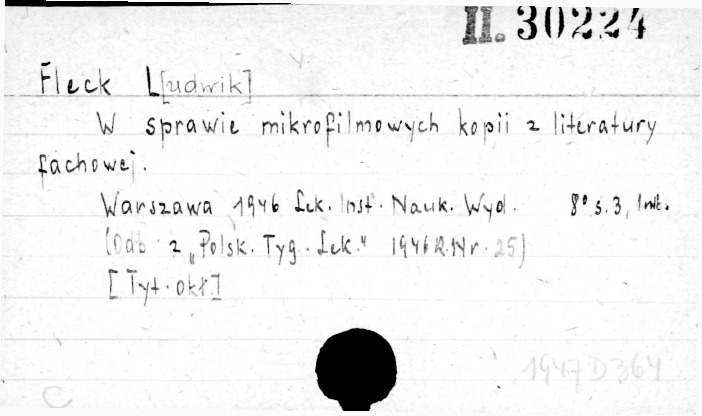 II. 30224
Fleck L[udwik]
W sprawie mikrofilmowych kopii z literatury
fachowej.
Warszawa 1946 Lek. Inst. Nauk. Wyd. 8° s. 3, 1 nlb.
(Odb. z „Polsk. Tyg. Lek." 1946 R. Nr. 25)
[Tyt. okł.]
1947 D 364
C